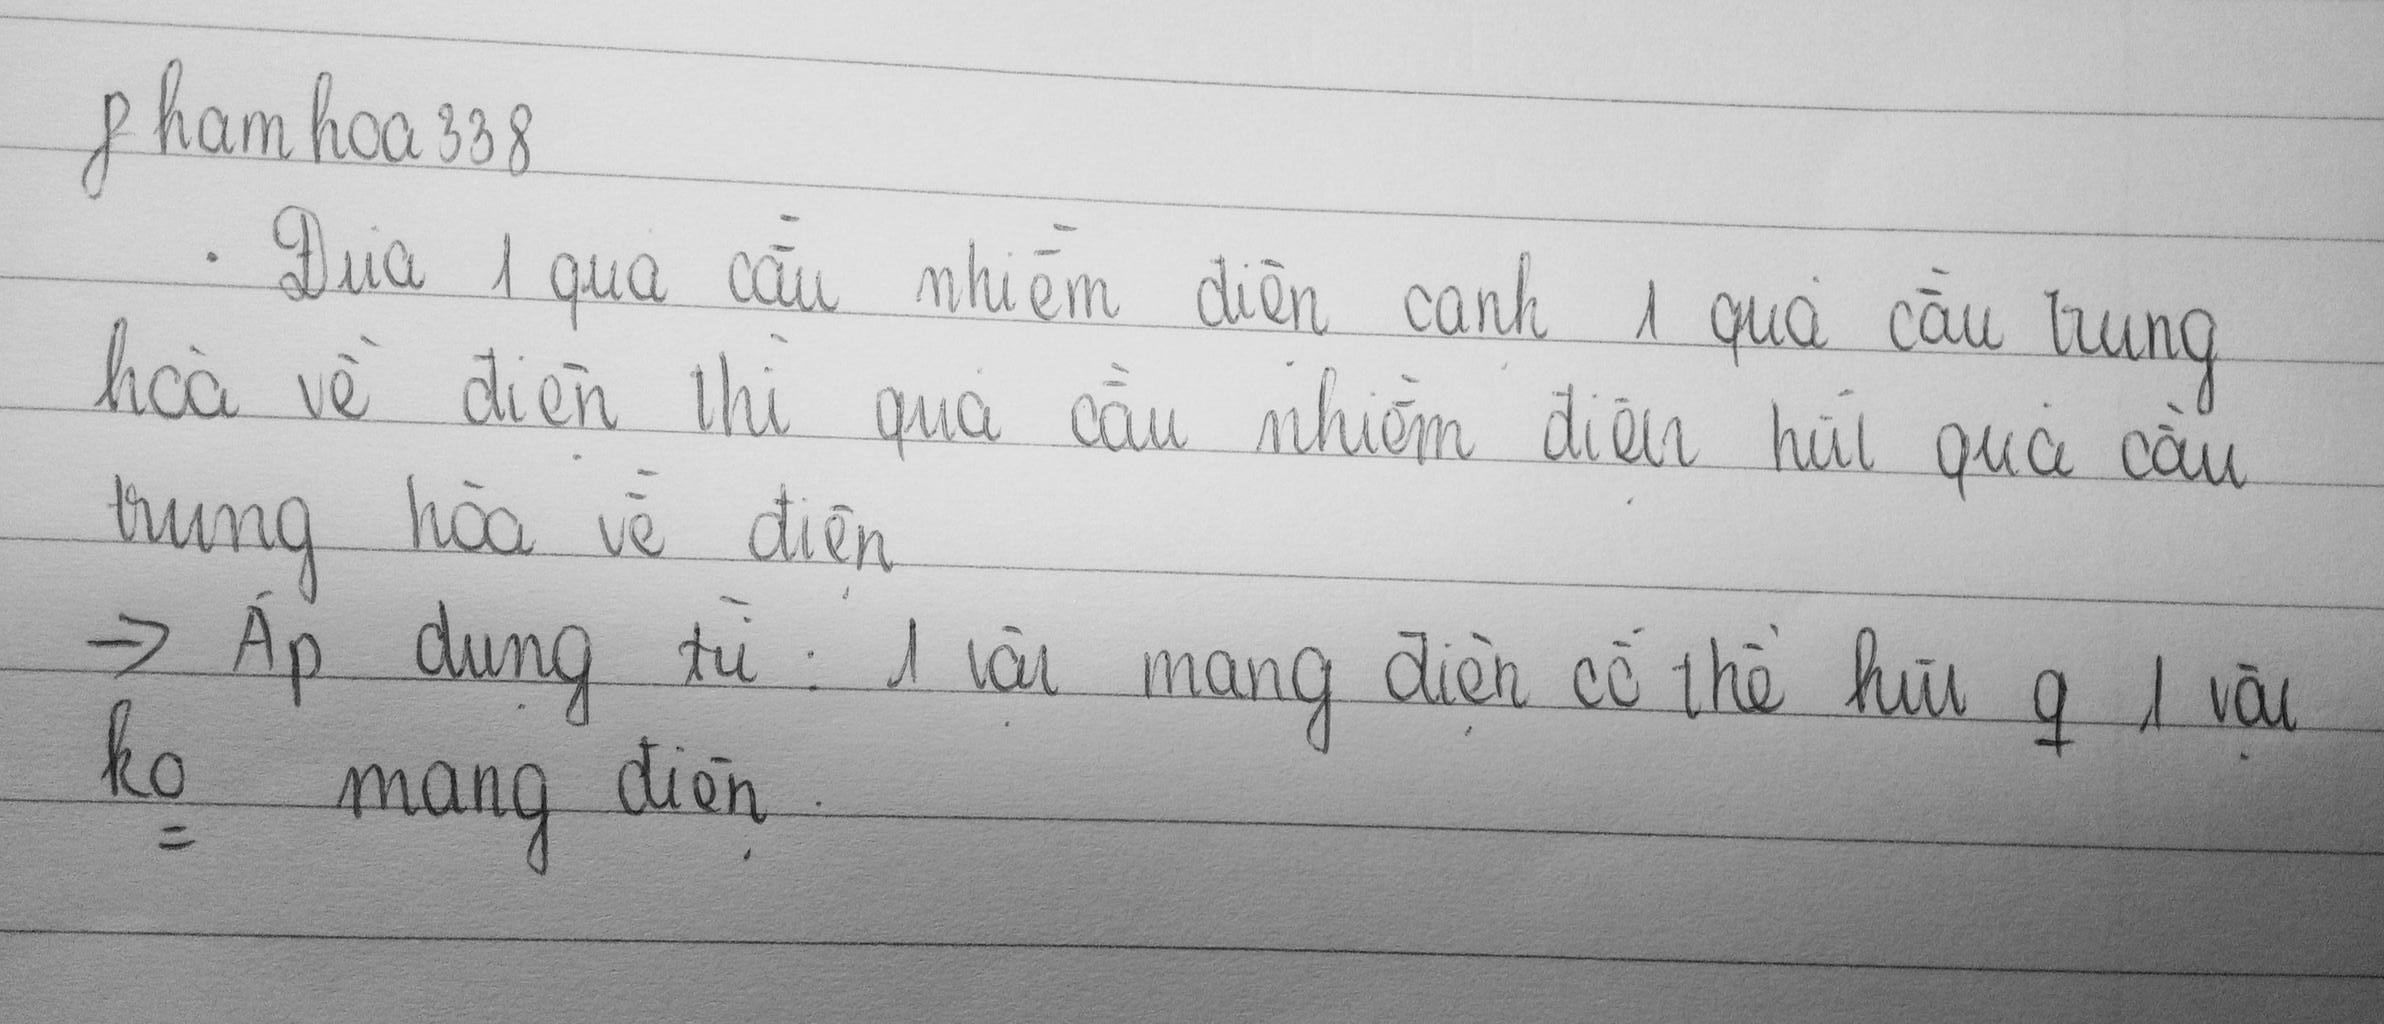 phamhoa338
. Đưa 1 quả cầu nhiễm điện cạnh 1 quả cầu trung
hoà về điện thì quả cầu nhiễm điện hút quả cầu
trung hòa về điện
=> Áp dụng từ : 1 vật mang điện có thể hút 1 vật
ko mang điện.